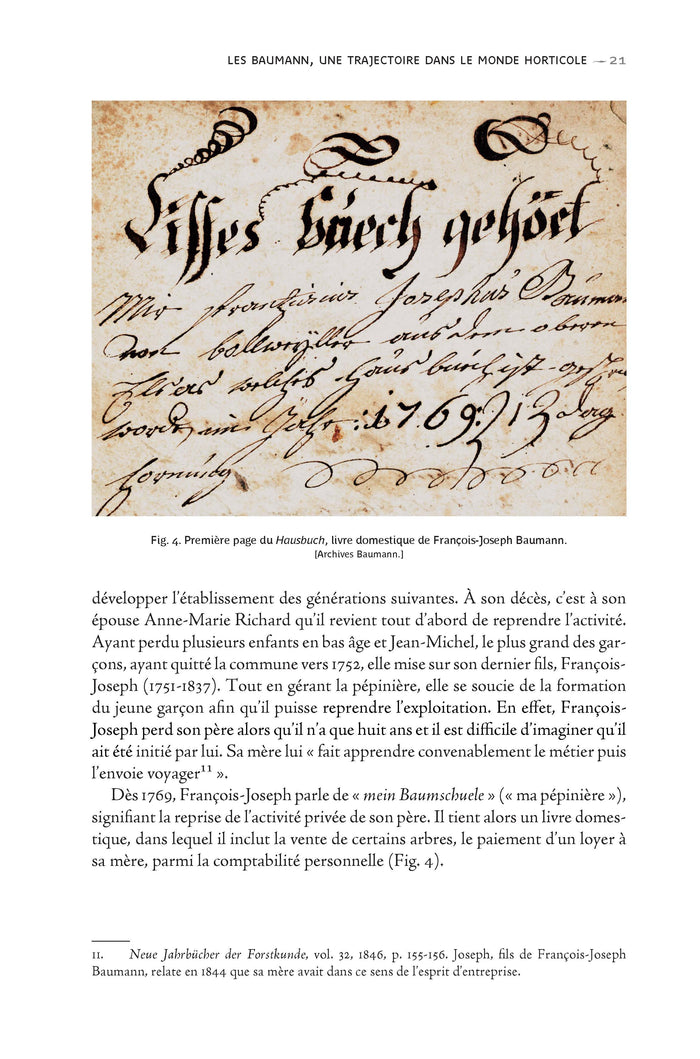 LES BAUMANN, UNE TRAJECTOIRE DANS LE MONDE HORTICOLE — 21
Disses büech gehöet
Mir frantziscus Josephus Bauman
von bollweÿller aus dem oberen
Elsas welches haus buich ist
worden im Jahr : 1769 : 13 dag
hornung
Fig. 4. Première page du Hausbuch, livre domestique de François-Joseph Baumann.
[Archives Baumann.]
développer l’établissement des générations suivantes. À son décès, c’est à son
épouse Anne-Marie Richard qu’il revient tout d’abord de reprendre l’activité.
Ayant perdu plusieurs enfants en bas âge et Jean-Michel, le plus grand des gar-
çons, ayant quitté la commune vers 1752, elle mise sur son dernier fils, François-
Joseph (1751-1837). Tout en gérant la pépinière, elle se soucie de la formation
du jeune garçon afin qu’il puisse reprendre l’exploitation. En effet, François-
Joseph perd son père alors qu’il n’a que huit ans et il est difficile d’imaginer qu’il
ait été initié par lui. Sa mère lui « fait apprendre convenablement le métier puis
l’envoie voyager¹¹ ».
Dès 1769, François-Joseph parle de « mein Baumschuele » (« ma pépinière »),
signifiant la reprise de l’activité privée de son père. Il tient alors un livre domes-
tique, dans lequel il inclut la vente de certains arbres, le paiement d’un loyer à
sa mère, parmi la comptabilité personnelle (Fig. 4).
11. Neue Jahrbücher der Forstkunde, vol. 32, 1846, p. 155-156. Joseph, fils de François-Joseph
Baumann, relate en 1844 que sa mère avait dans ce sens de l’esprit d’entreprise.